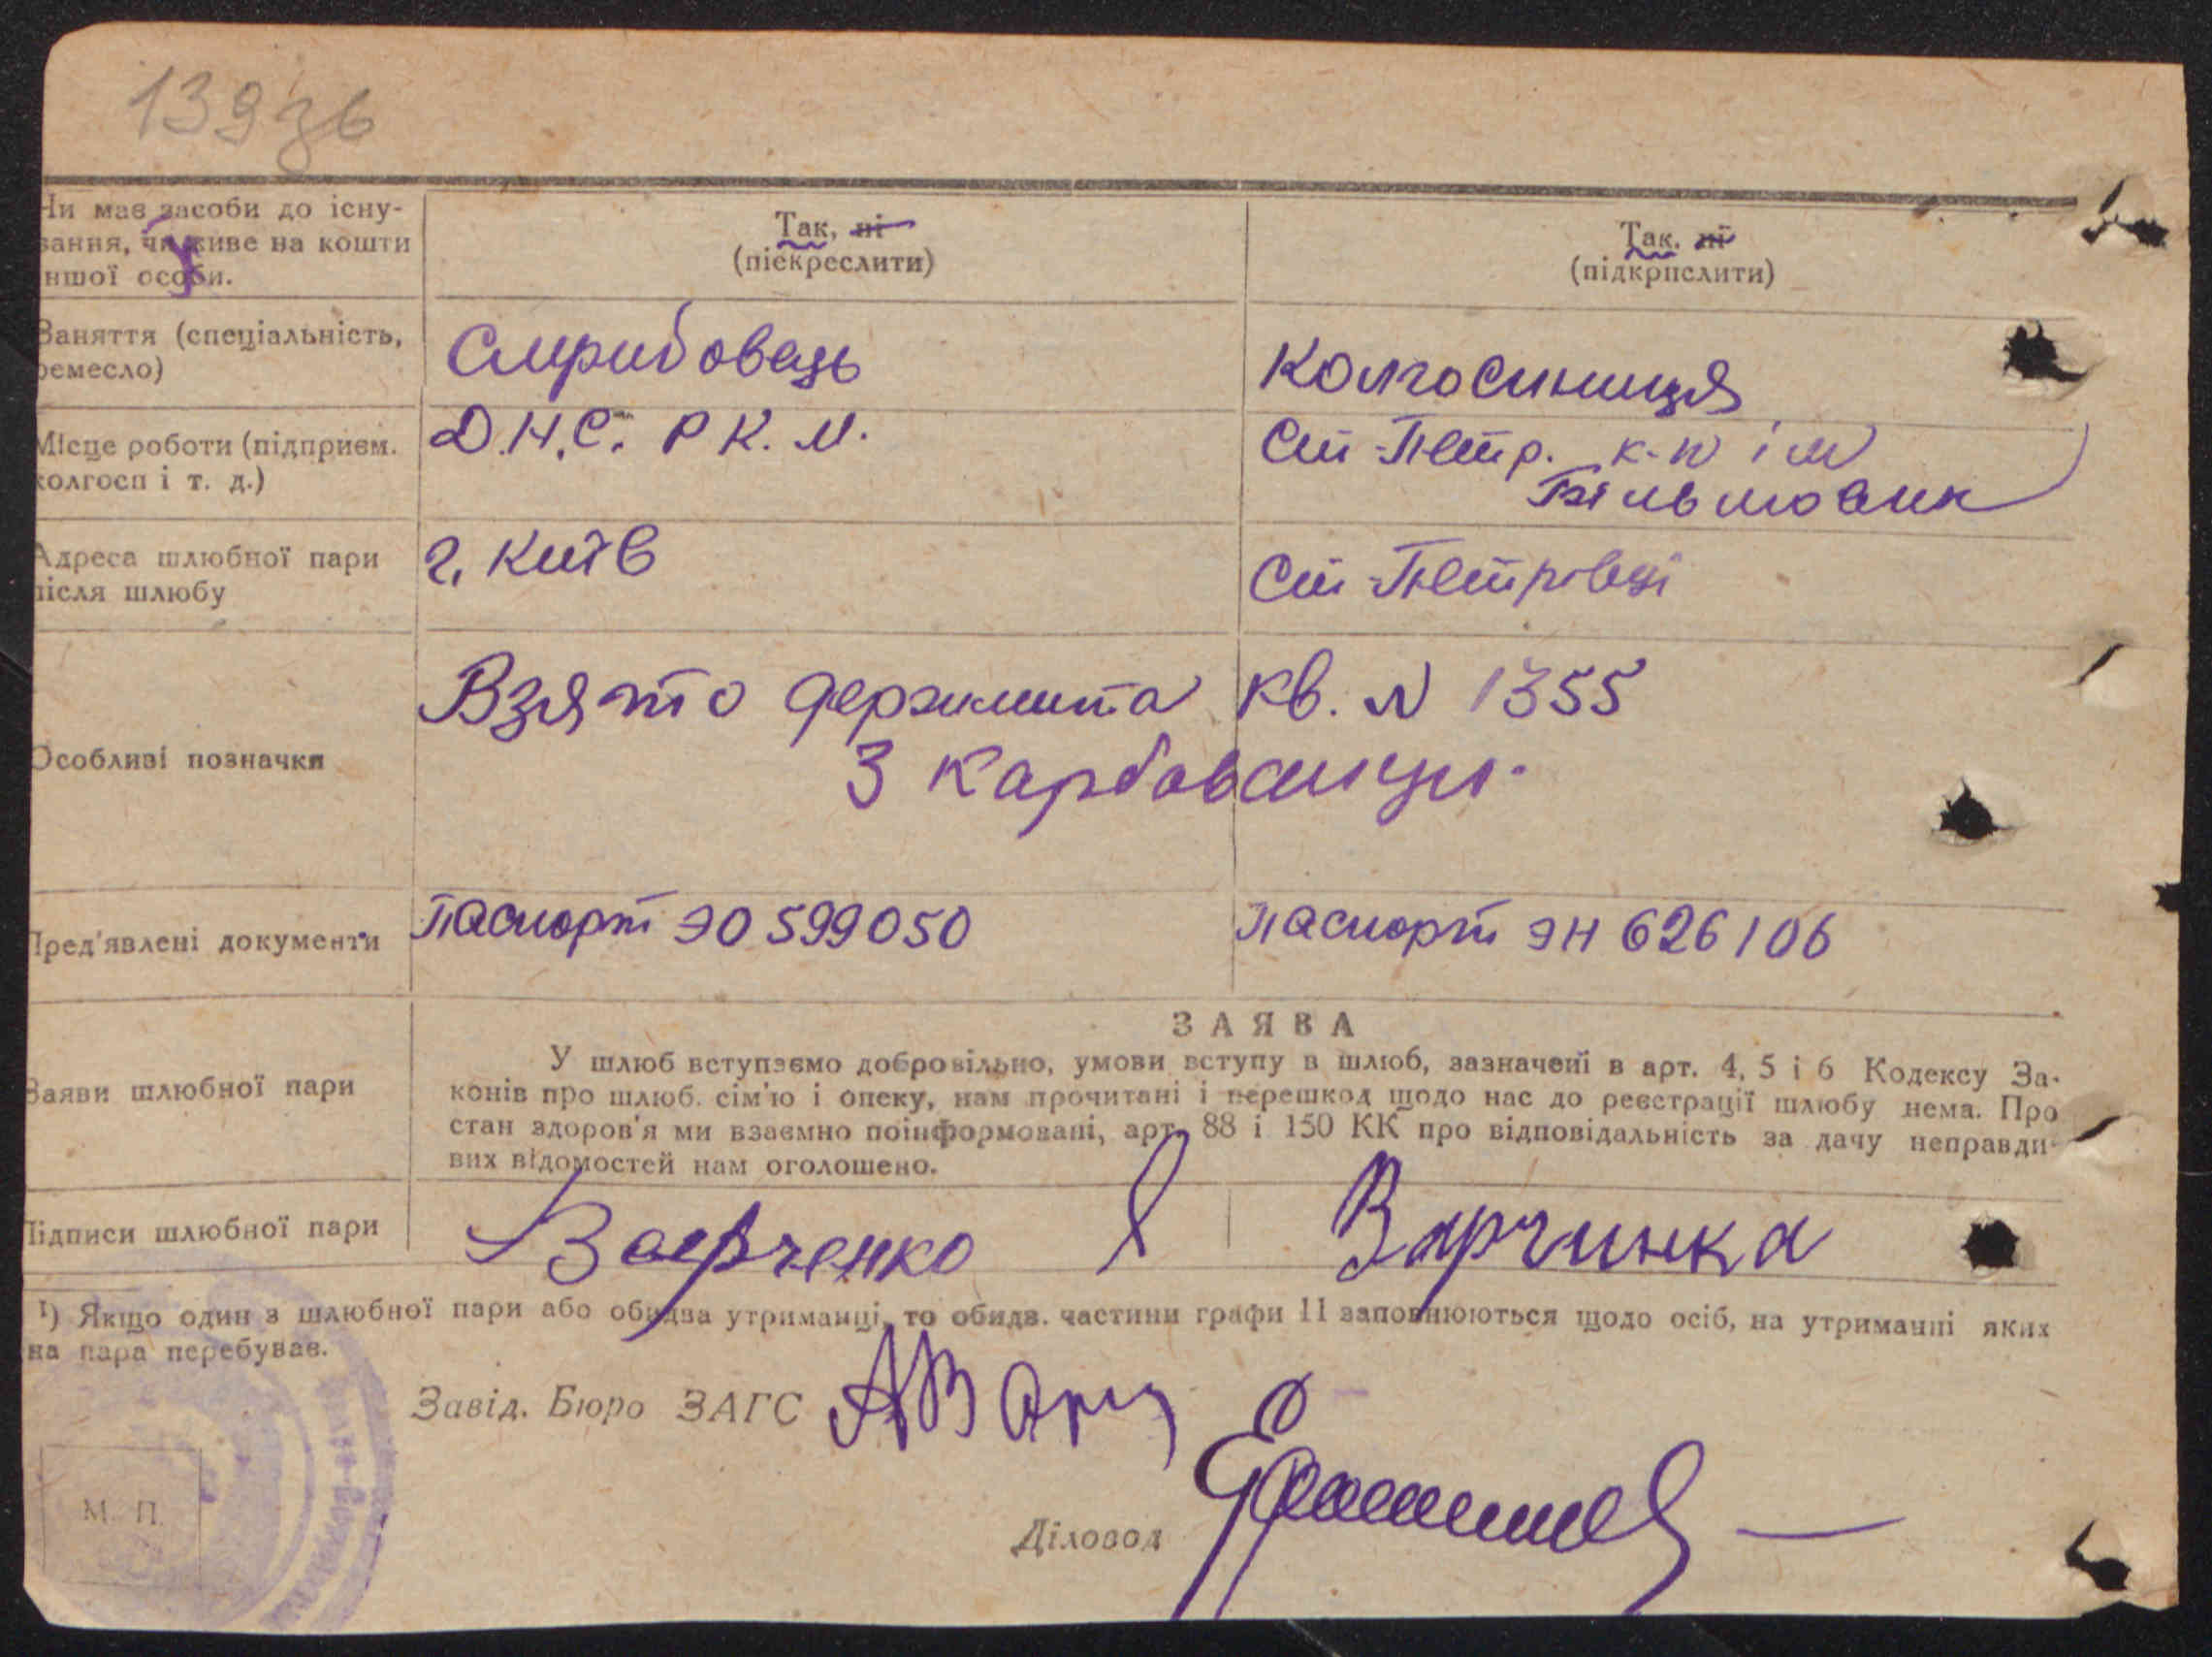 139зв
Чи має засоби до існу-
вання, чи живе на кошти
іншої особи.
Так, ні
(піскреслити)
Так, ні
(підкрпслити)
Заняття (спеціальність,
ремесло)
Стрибовець
Колгоспниця
Місце роботи (підприєм.
колгосп і т. д.)
Д.Н.С. Р К. М.
Ст-Петр. к-п ім
Тельмана
Адреса шлюбної пари
після шлюбу
г. Київ
Ст-Петрівці
Особливі позначки
Взято держмита кв. N 1355
3 карбованци.
Пред'явлені документи
Паспорт ЭО 599050
Паспорт ЭН 626106
Заяви шлюбної пари
ЗАЯВА
У шлюб вступаємо добровільно, умови вступу в шлюб, зазначені в арт. 4, 5 і 6 Кодексу За-
конів про шлюб. сім'ю і опеку, нам прочитані і перешкод щодо нас до реєстрації шлюбу нема. Про
стан здоров'я ми взаємно поінформовані, арт. 88 і 150 КК про відповідальність за дачу неправди-
вих відомостей нам оголошено.
Підписи шлюбної пари
Варченко
Варчинка
¹) Якщо один з шлюбної пари або обидва утриманці, то обидв. частини графи 11 заповнюються щодо осіб, на утриманні яких
на пара перебуває.
Завід. Бюро ЗАГС
Діловод
М. П.